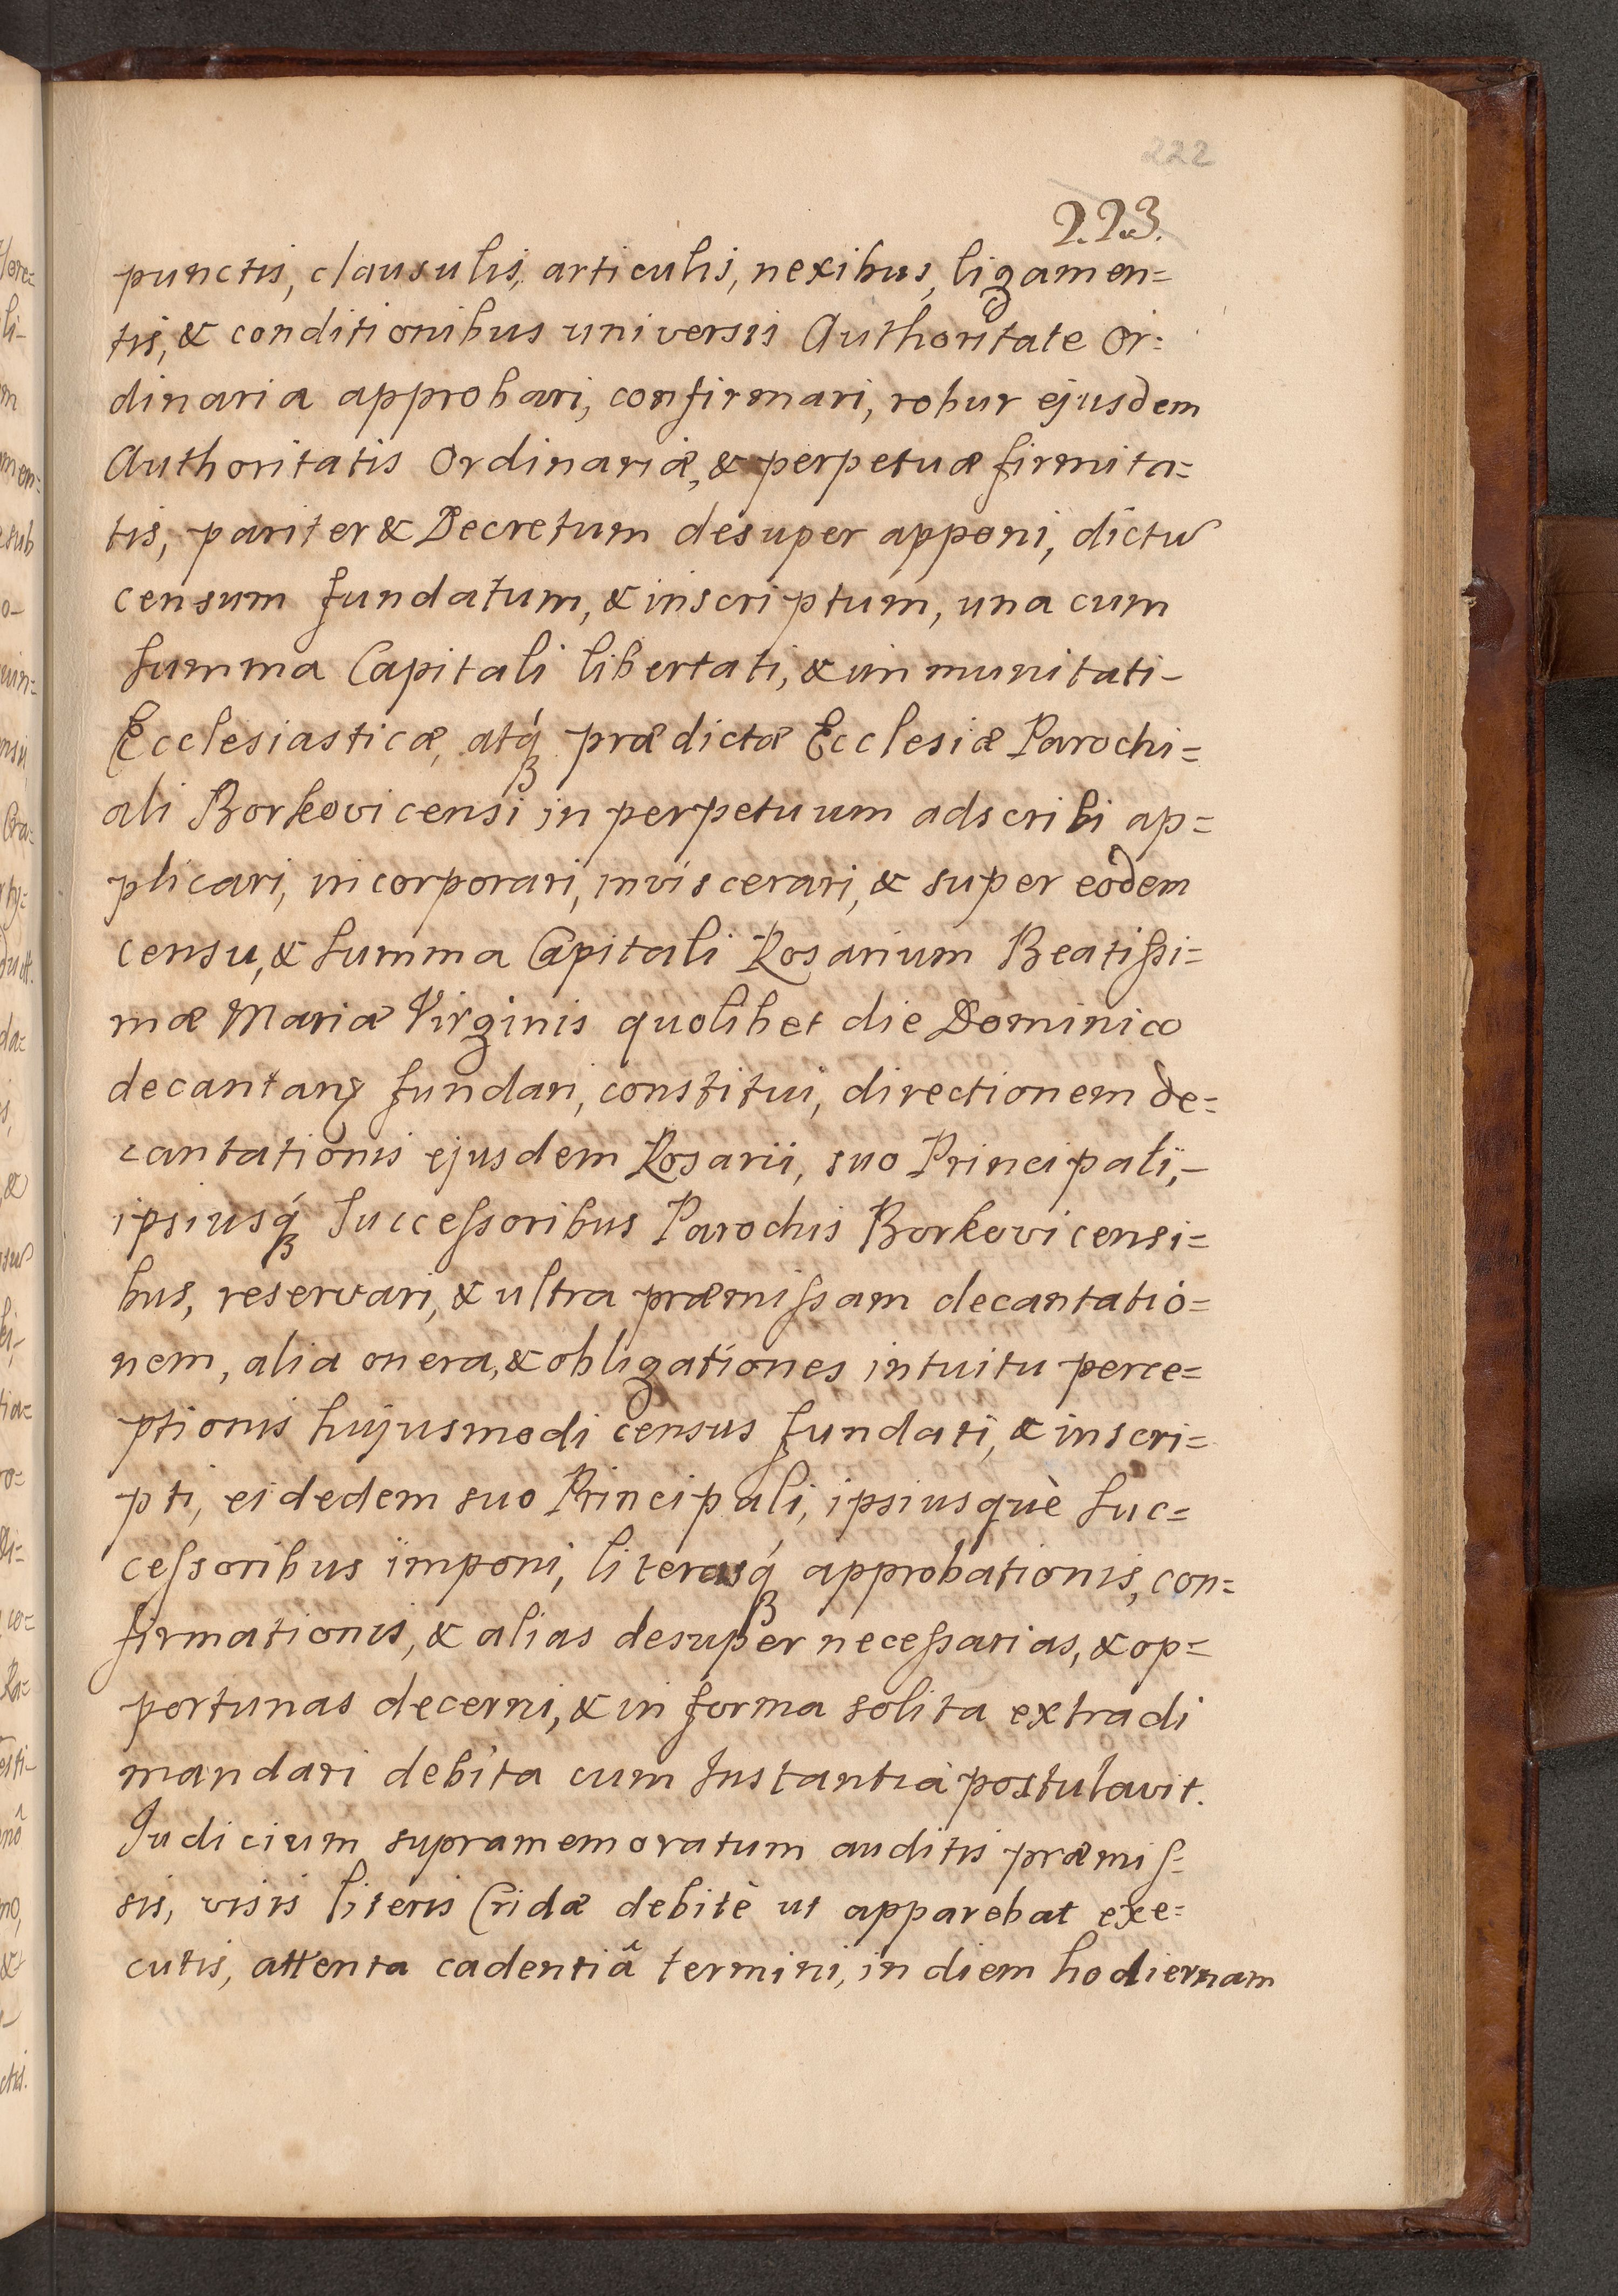 222
223.
punctis, clausulis, articulis, nexibus, ligamen=
tis, & conditionibus universis Authoritate Or=
dinaria approbari, confirmari, robur ejusdem
Authoritatis Ordinariæ, & perpetuæ firmita=
tis, pariter & Decretum desuper apponi, dictũ
censum fundatum, & inscriptum, una cum
summa Capitali libertati, & immunitati –
Ecclesiasticæ, atq́ꝫ prædictæ Ecclesiæ Parochi=
ali Borkovicensi in perpetuum adscribi ap=
plicari, incorporari, inviscerari, & super eodem
censu, & summa Capitali Rosarium Beatissi=
mæ Mariæ Virginis quolibet die Dominico
decantanꝫ fundari, constitui, directionem de=
cantationis ejusdem Rosarii, suo Principali, –
ipsiusq́ꝫ Successoribus Parochis Borkovicensi=
bus, reservari, & ultra præmissam decantatio=
nem, alia onera, & obligationes intuitu perce=
ptionis hujusmodi census fundati, & inscri=
pti, eidedem suo Principali, ipsiusquè Suc=
cessoribus imponi, literasq́ꝫ approbationis, con=
firmationis, & alias desuper necessarias, & op=
portunas decerni, & in forma solita extradi
mandari debita cum Instantia postulavit.
Iudicium supramemoratum auditis præmis=
sis, visis literis Cridæ debitè ut apparebat exe=
cutis, attenta cadentiâ termini, in diem hodiernam